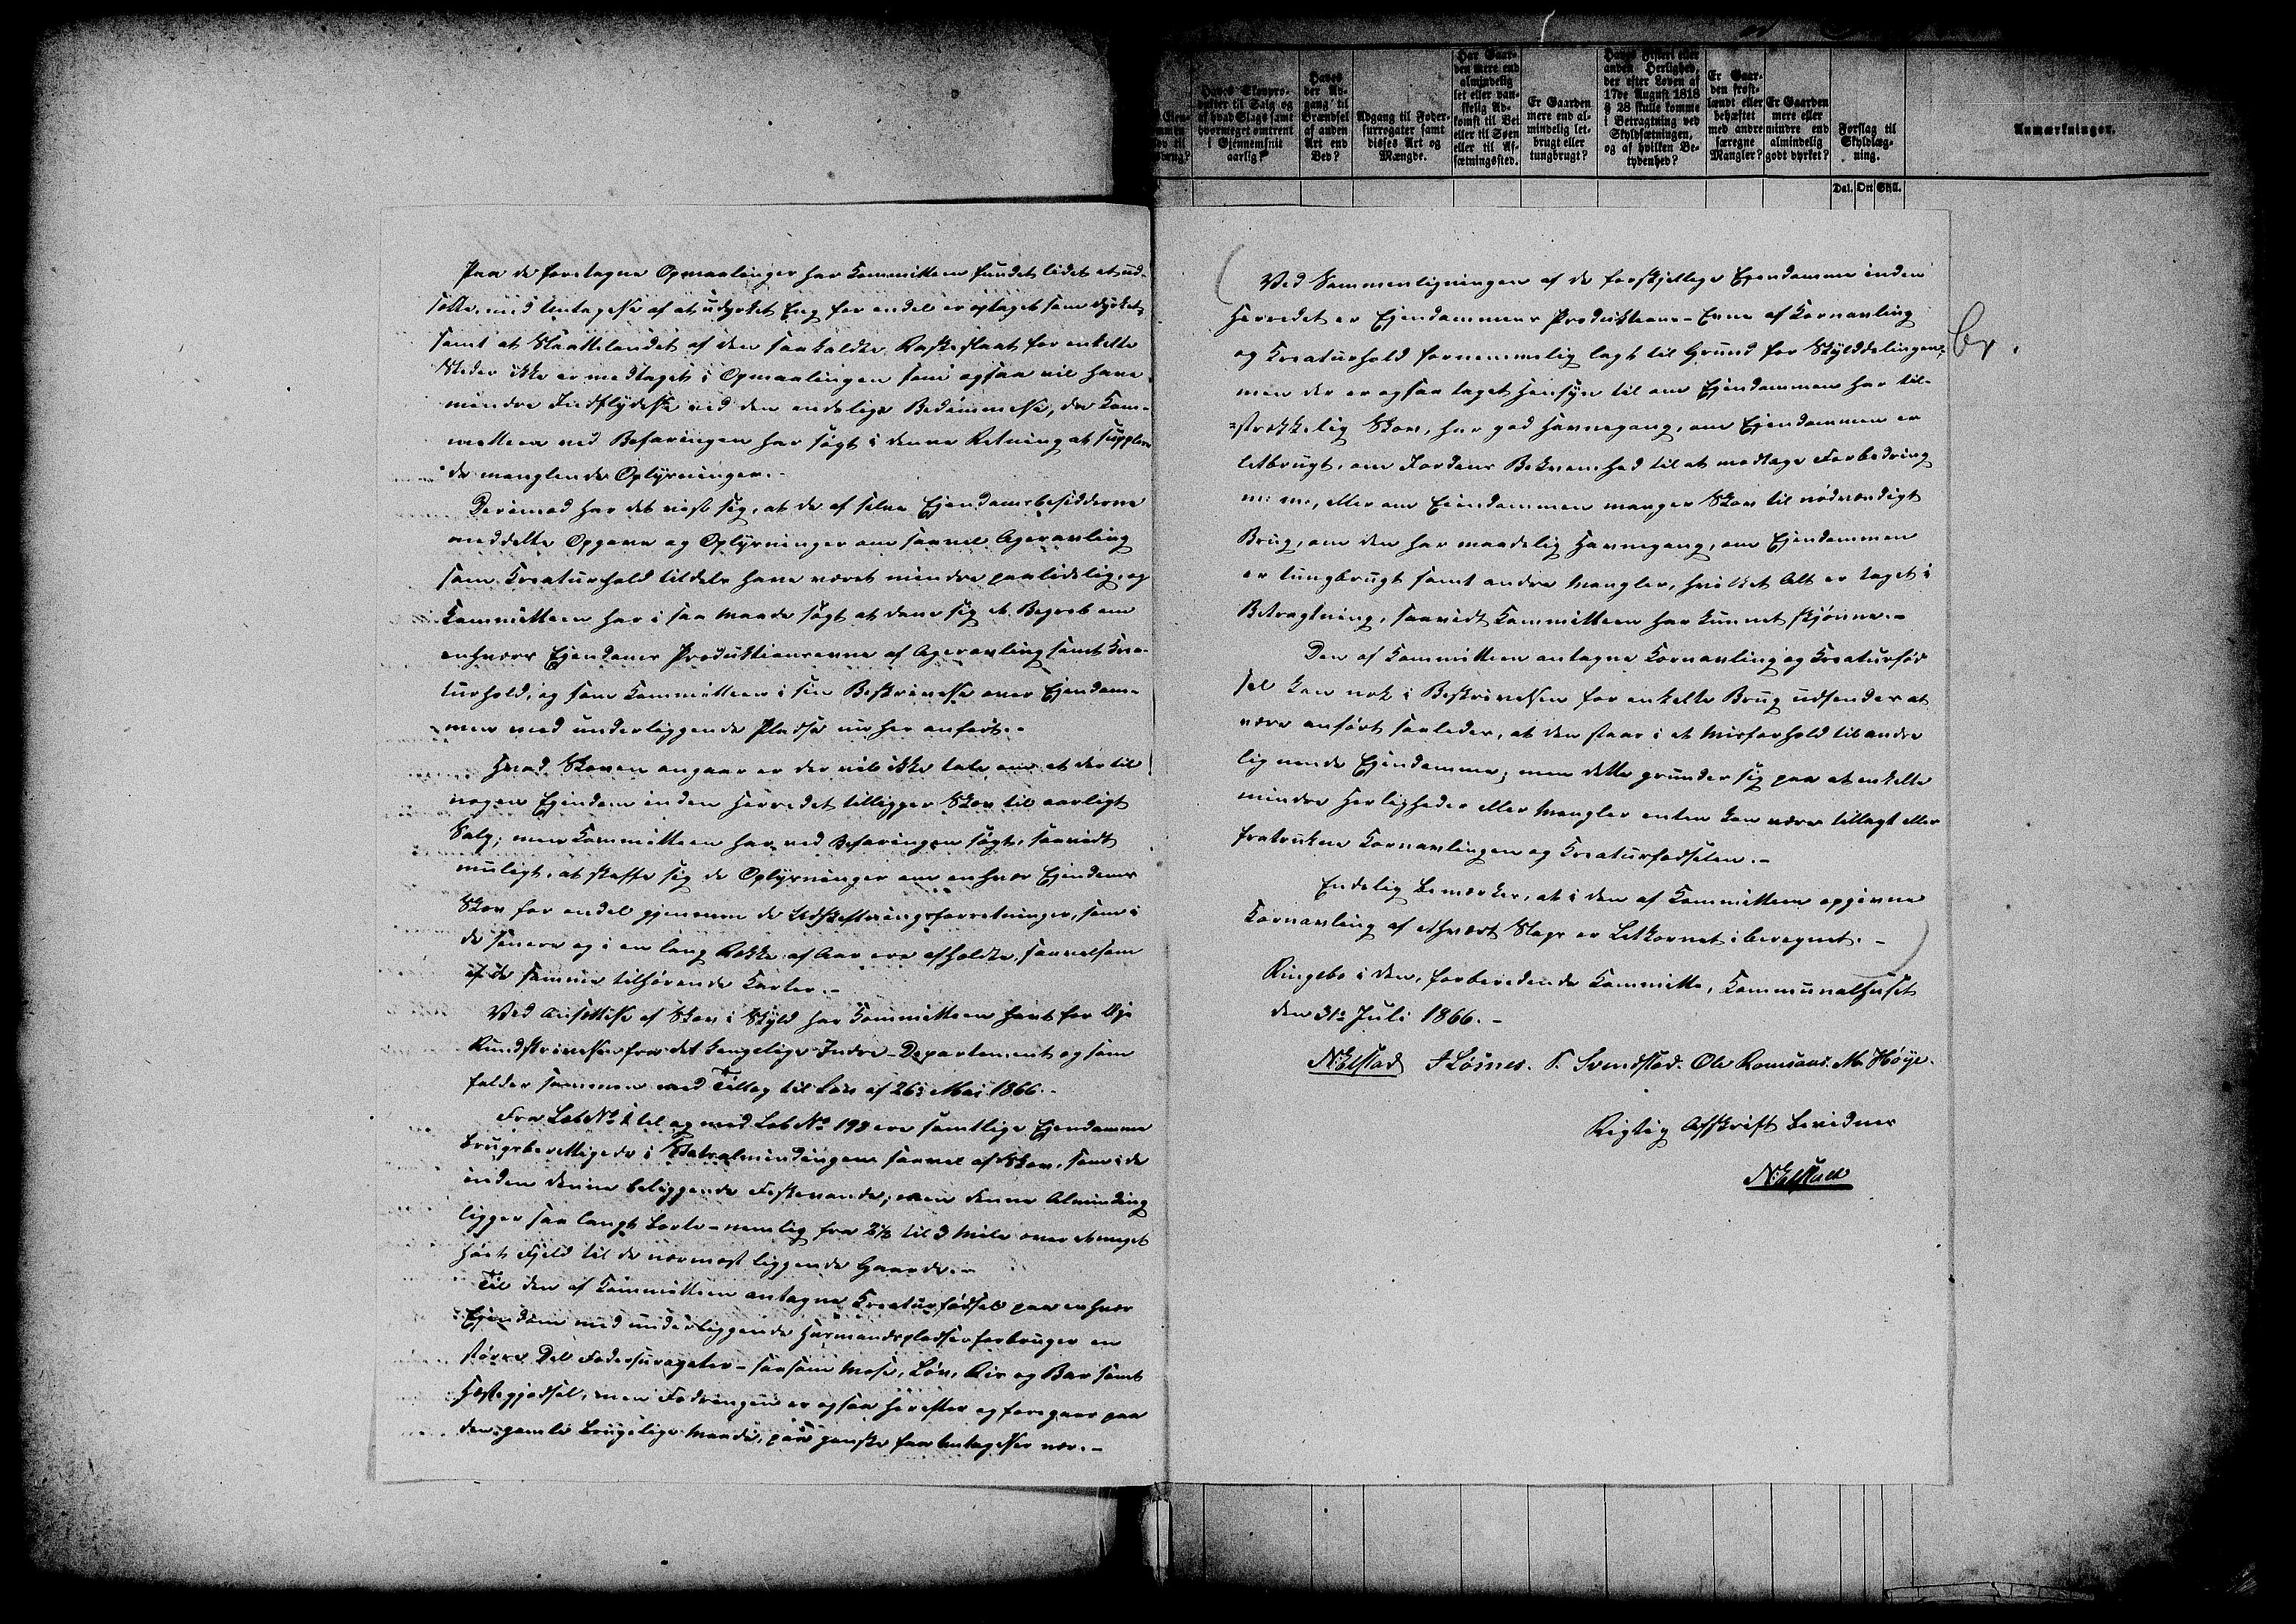 Har Gaar-
den mere end
almindelig
let eller van-
skelig Ad-
komst til Vei
eller til Søen
eller til Af-
sætningssted.
Haves Skovpro-
dukter til Salg og
af hvad Slags samt
hvormeget omtrent
i Gjennemsnit
aarlig?
Haves
der Ad-
gang til
Brændsel
af anden
Art end
Ved?
Adgang til Foder-
surrogater samt
disses Art og
Mængde.
Er Gaarden
mere end al-
mindelig let-
brugt eller
tungbrugt?
Haves Fiskeri eller
anden Herlighed,
der efter Loven af
17de August 1818
§ 28 skulle komme
i Betragtning ved
Skyldsætningen,
og af hvilken Be-
tydenhed?
Er Gaar-
den frost-
lændt eller
behæftet
med andre
særegne
Mangler?
Er Gaarden
mere eller
mindre end
almindelig
godt dyrket?
Forslag til
Skyldlæg-
ning.
Dal. Ort Skill.
Anmærkninger.
Paa de foretagne Opmaalinger har Kommitteen fundet lidet at ud-
sætte, med Undtagelse af at udyrket Eng for endel er optaget som dyrket,
samt at Slaattelandet af den saakaldte Raskeslaat for enkelte
Steder ikke er medtaget i Opmaalingen som ogsaa vil have
mindre Indflydelse ved den endelige Bedömmelse, da Kom-
mitteen ved Befaringen har sögt i denne Retning at supplere
de manglende Oplysninger.-
Derimod har det vist sig, at de af selve Eiendomsbesidderne
meddelte Opgaver og Oplysninger om saavel Ageravling
som Kreaturhold tildels have været mindre paalidelig, og
Kommitteen har i saa Maade sögt at danne sig et Begreb om
enhver Ejendoms Produktionsevne af Ageravling samt Krea-
turhold, og som Kommitteen i sin Beskrivelse over Ejendom-
men med underliggende Pladse nu har anfört.-
Hvad Skoven angaar er der vel ikke tale om at der til
nogen Ejendom inden Herredet tilligger Skov til aarligt
Salg; men Kommitteen har ved Befaringen sögt, saavidt
muligt, at skaffe sig de Oplysninger om enhver Ejendoms
Skov for endel gjennem de Udskiftningsforretninger, som i
de senere og i en lang Række af Aar ere afholdte, saavelsom
af de samme tilhørende Karter.-
Ved Ansættelse af Skov i Skyld har Kommitteen havt for Öje
Rundskrivelse fra det kongelige Indre-Departement og som
falder sammen med Tillæg til Lov af 26: Mai 1866.-
Fra Løb No 1 til og med Løb No 198 ere samtlige Ejendomme
brugsberettigede i Statsalmindingen saavel af Skov, som i de
inden denne beliggende Fiskevande; men denne Alminding
ligger saa langt borte - nemlig fra 2½ til 3 Mile over et meget
høit Fjeld til de nærmest liggende Gaarde.-
Til den af Kommitteen antagne Kreaturfödsel paa enhver
Ejendom med underliggende Husmandspladser forbruges en
större Del Fodersurogater - saasom Mose, Löv, Ris og Bar samt
Hestegjødsel, men Fodringen er ogsaa herefter og foregaar paa
den gamle brugelige Maade, paa ganske faa Undtagelser nær.-
Ved Sammenligningen af de forskjellige Ejendomme inden
Herredet er Ejendommens Produktions-Evne af Kornavling
og Kreaturhold fornemmelig lagt til Grund for Skylddelingen,
men der er ogsaa taget Hensyn til om Ejendommen har til-
strækkelig Skov, har god Havnegang, om Ejendommen er
letbrugt, om Jordens Bekvemhed til at modtage Forbedring
m: m:, eller om Eiendommen mangler Skov til nödvendigt
Brug, om den har maadelig Havnegang, om Ejendommen
er tungbrugt samt andre Mangler, hvilket Alt er taget i
Betragtning, saavidt Kommitteen har kunnet skjönne.-
Den af Kommitteen antagne Kornavling og Kreaturföd-
sel kan nok i Beskrivelsen for enkelte Brug udsendes at
være anfört saaledes, at den staar i et Misforhold til andre
lignende Ejendomme; men dette grunder sig paa at enkelte
mindre Herligheder eller Mangler enten kan være tillagt eller
fratrukne Kornavlingen og Kreaturfödselen.-
Endelig bemærkes, at i den af Kommitteen opgivne
Kornavling af ethvert Slags er Letkornet iberegnet.-
Ringebo i den forberedende Kommitte, Kommunalhuset
den 31: Juli 1866.-
N. Elstad J Lösnes. P. Svendstad. Ole Romsaas. M. Höye.
Rigtig Afskrift bevidner
N. Elstad